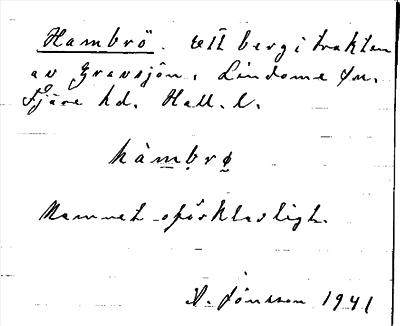 Hambrö. Ett berg i trakten
av Gravsjön, Lindome sn.
Fjäre hd. Hall. l.
hàmbrø
Namnet oförklarligt.
A. Jönsson 1941